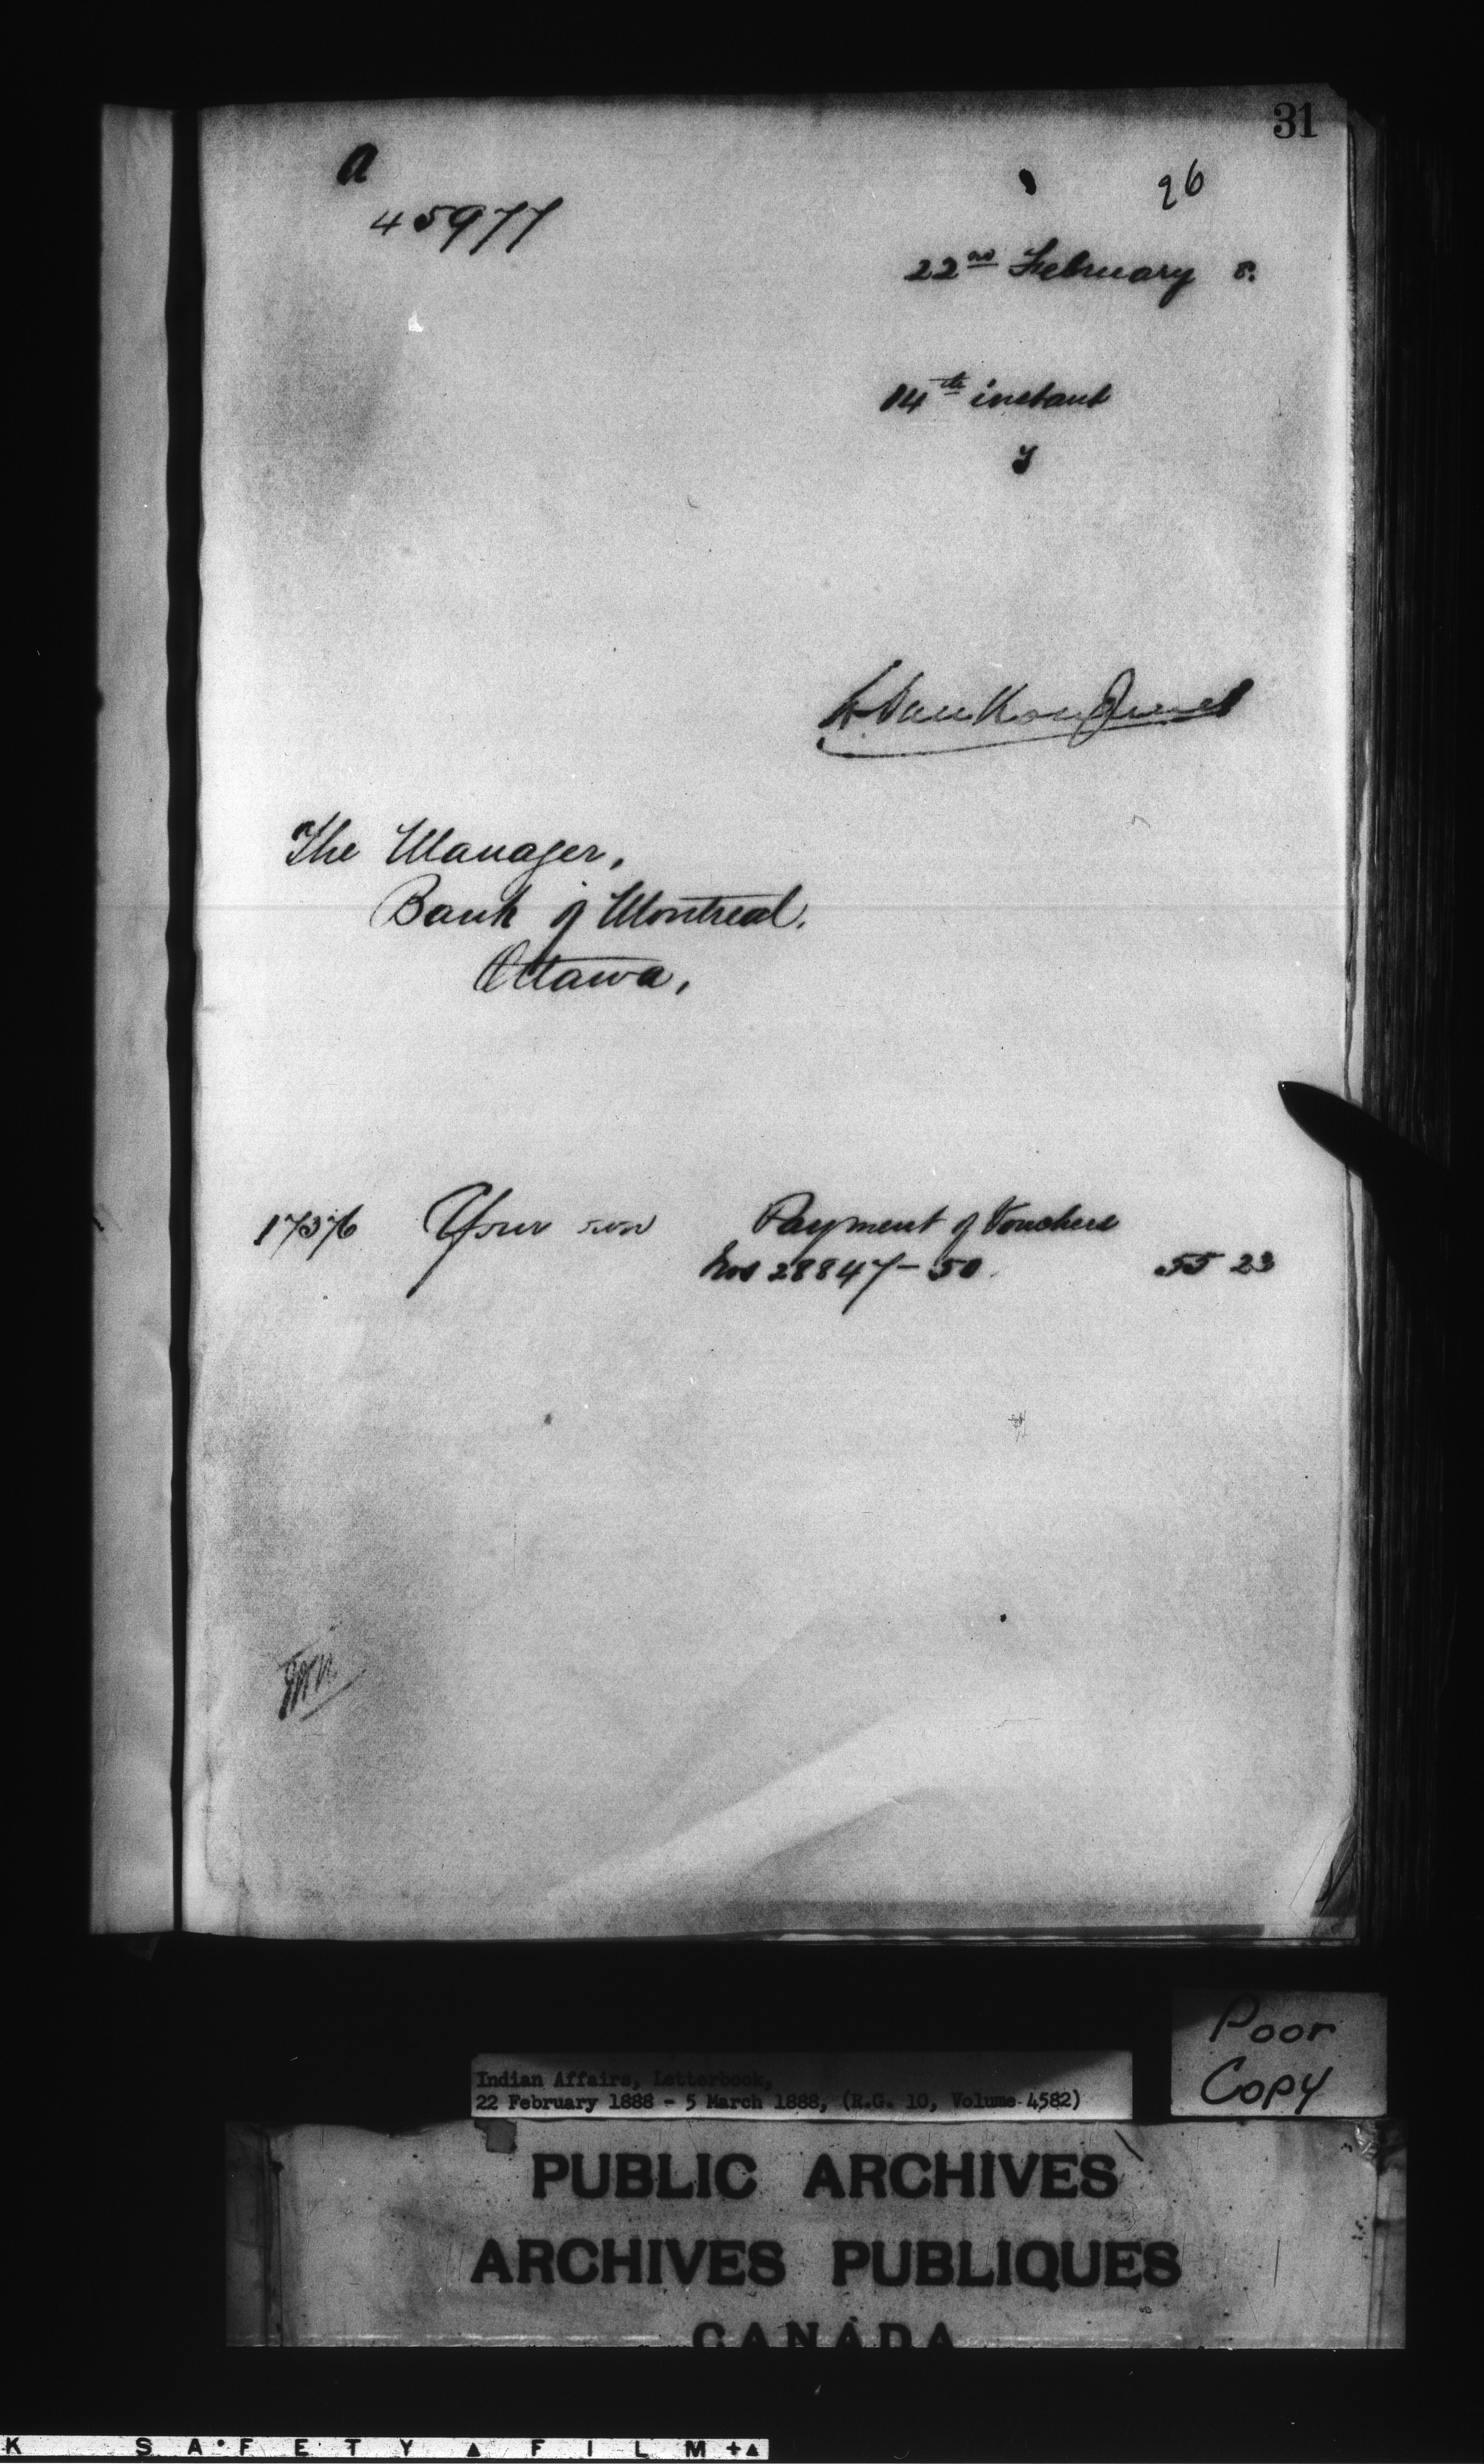 31
a
26
45977
22nd February 8.
14th instant
y
L. VanKoughnet
The Manager,
Bank of Montreal.
Ottawa,
1736 Your own Payment of Vouchers
Nos 28847-50. 55 23
Poor
Copy
Indian Affairs, Letterbook,
22 February 1888 - 5 March 1888, (R.G. 10, Volume 4582)
PUBLIC ARCHIVES
ARCHIVES PUBLIQUES
CANADA
K SAFETY ▲ FILM +▲